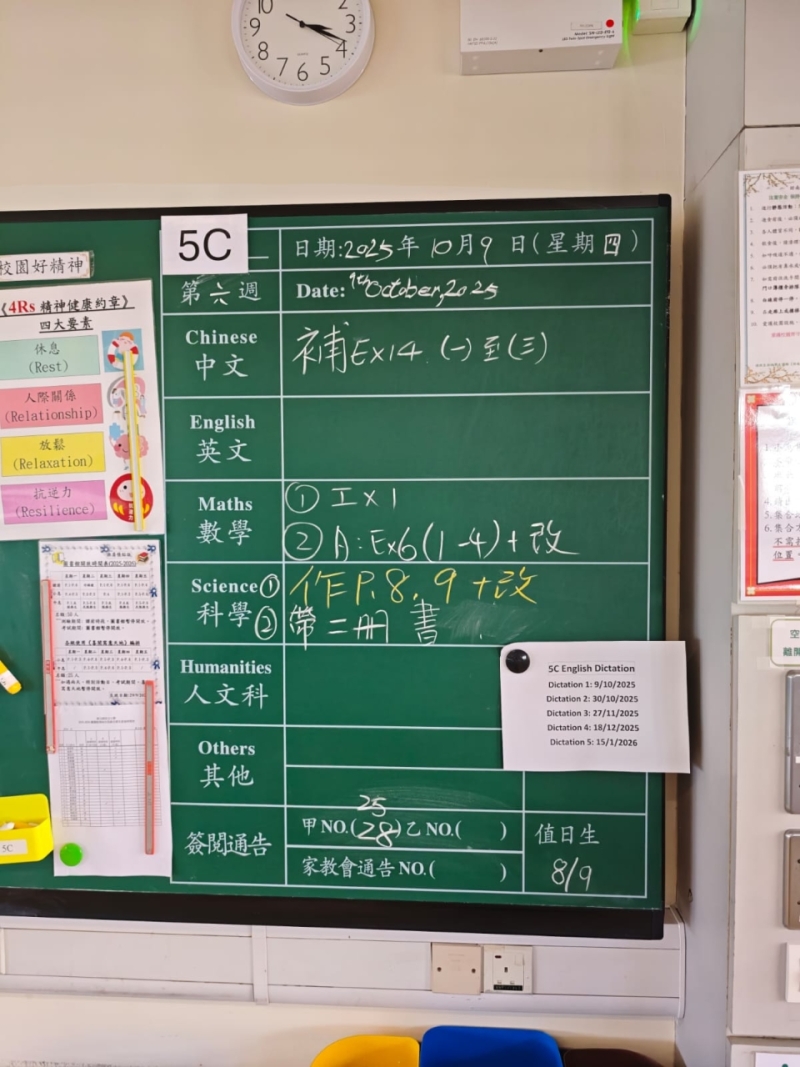 10
2
9
3
8
4
7
6
5
校園好精神
《4Rs 精神健康約章》
四大要素
休息
(Rest)
人際關係
(Relationship)
放鬆
(Relaxation)
抗逆力
(Resilience)
5C
日期:2025年10月9日(星期四)
第六週
Date: 9th October, 2025
Chinese
中文
補Ex14 (一)至(三)
English
英文
Maths
數學
① 工x1
② A: Ex6(1-4)+改
Science①
科學②
作P.8, 9 +改
帶二冊書
Humanities
人文科
Others
其他
簽閱通告
25
甲NO.(28)乙NO.( )
家教會通告NO.( )
值日生
8/9
5C English Dictation
Dictation 1: 9/10/2025
Dictation 2: 30/10/2025
Dictation 3: 27/11/2025
Dictation 4: 18/12/2025
Dictation 5: 15/1/2026
5C
不需
位置
空
離開